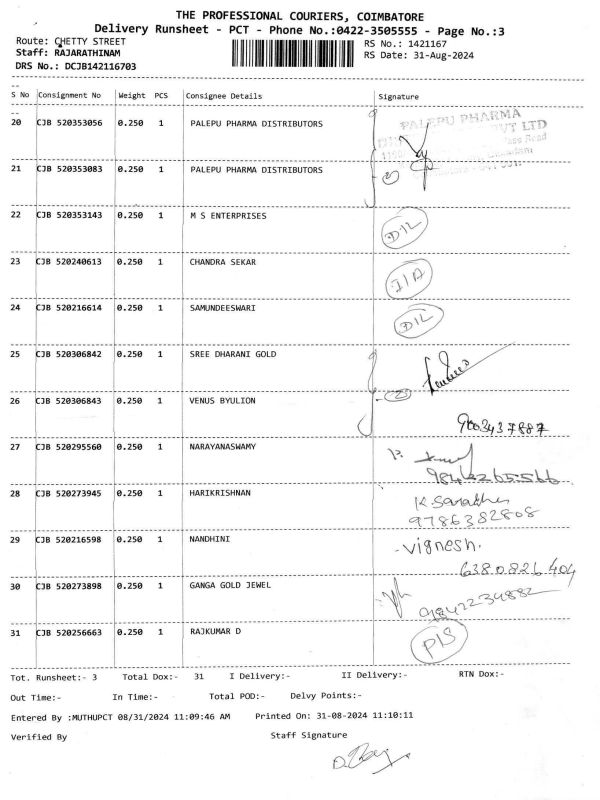 THE PROFESSIONAL COURIERS, COIMBATORE
Delivery Runsheet - PCT - Phone No.:0422-3505555 - Page No.:3
Route: CHETTY STREET
RS No.: 1421167
Staff: RAJARATHINAM
RS Date: 31-Aug-2024
DRS No.: DCJB142116703
S No Consignment No Weight PCS Consignee Details Signature
20 CJB 520353056 0.250 1 PALEPU PHARMA DISTRIBUTORS
PALEPU PHARMA
21 CJB 520353083 0.250 1 PALEPU PHARMA DISTRIBUTORS (2)
22 CJB 520353143 0.250 1 M S ENTERPRISES D/L
23 CJB 520240613 0.250 1 CHANDRA SEKAR I/A
24 CJB 520216614 0.250 1 SAMUNDEESWARI D/L
25 CJB 520306842 0.250 1 SREE DHARANI GOLD
26 CJB 520306843 0.250 1 VENUS BYULION (2)
9003437887
27 CJB 520295560 0.250 1 NARAYANASWAMY
28 CJB 520273945 0.250 1 HARIKRISHNAN
9786382808
29 CJB 520216598 0.250 1 NANDHINI - vignesh.
6380826404
30 CJB 520273898 0.250 1 GANGA GOLD JEWEL
9842234882
31 CJB 520256663 0.250 1 RAJKUMAR D
Tot. Runsheet:- 3 Total Dox:- 31 I Delivery:- II Delivery:- RTN Dox:-
Out Time:- In Time:- Total POD:- Delvy Points:-
Entered By :MUTHUPCT 08/31/2024 11:09:46 AM Printed On: 31-08-2024 11:10:11
Verified By Staff Signature